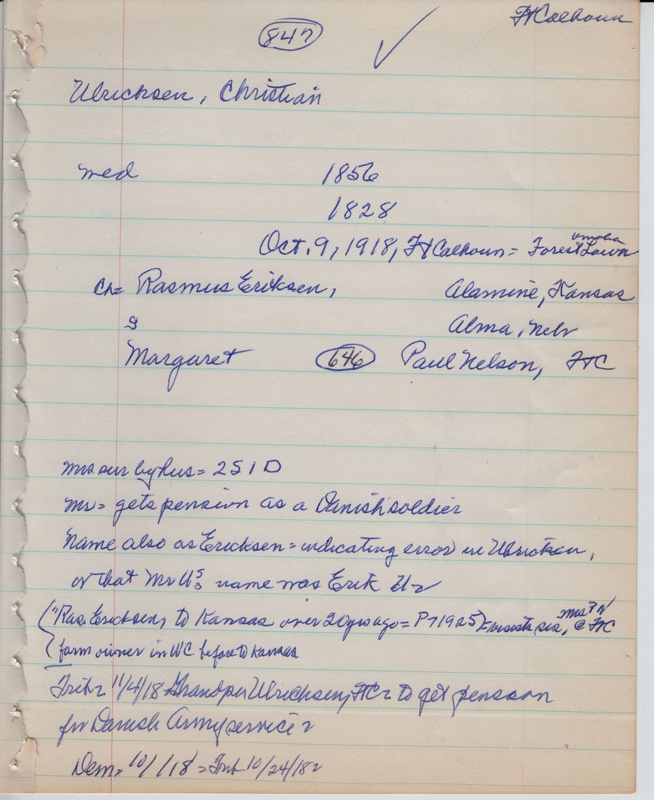 847
Ft Calhoun
Ulricksen, Christian
med 1856
1828
Oct. 9, 1918, Ft Calhoun = Forest Lawn
omaha
Ch = Rasmus Eriksen, Alamine, Kansas
g Alma, Nebr
Margaret 646 Paul Nelson, FtC
Mrs sur by hus = 2 S 1 D
Mr = gets pension as a Danish soldier
Name also as Ericksen = indicating error in
or that Mr U's name was Erik U
("Ras Ericksen, to Kansas over 20 yrs ago = P 7 1925) sis, Mrs P N @ FtC
farm owner in WC before to Kansas
Trib 11/4/18 Grandpa Ulricksen, FtC to get pension
for Danish Army service
Dem 10/ /18 = Trib 10/24/18